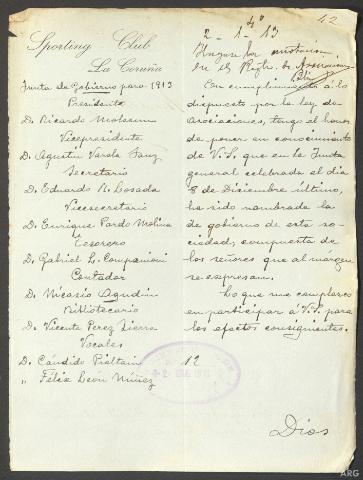 12
2 - 1 - 13
Sporting Club
La Coruña
Junta de Gobierno para 1913
Presidente
D. Ricardo Molezun
Vicepresidente
D. Agustin Varela Sanz
Secretario
D. Eduardo R. Losada
Vicesecretario
D. Enrique Pardo Molina
Tesorero
D. Gabriel L. Companioni
Contador
D. Nicasio Agudin
Bibliotecario
D. Vicente Perez Sierra
Vocales
D. Cándido Pieltain
" Félix León Núñez
Hágase la anotacion
en el Regtro. de Asociaciones
En cumplimiento á lo
dispuesto por la ley de
asociaciones, tengo el honor
de poner en conocimiento
de V.S. que en la Junta
general celebrada el dia
8 de Diciembre último,
ha sido nombrada la
de gobierno de esta so-
ciedad, compuesta de
los señores que al margen
se expresan.
Lo que me complazco
en participar á V.S. para
los efectos consiguientes.
12
Dios
ARG